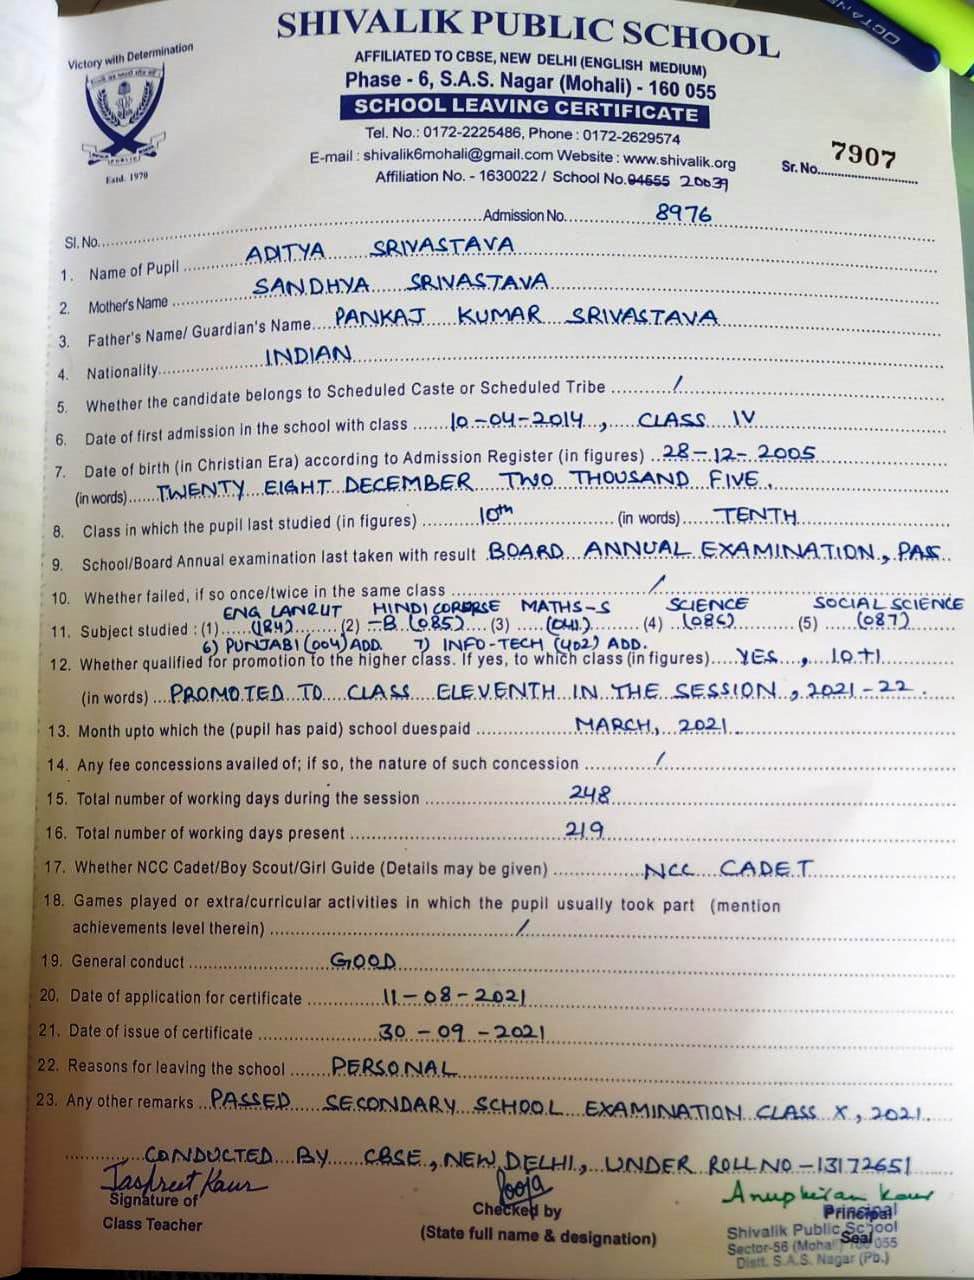 OCTANE
SHIVALIK PUBLIC SCHOOL
Victory with Determination
AFFILIATED TO CBSE, NEW DELHI (ENGLISH MEDIUM)
Phase - 6, S.A.S. Nagar (Mohali) - 160 055
SCHOOL LEAVING CERTIFICATE
Tel. No.: 0172-2225486, Phone : 0172-2629574
E-mail : shivalik6mohali@gmail.com Website : www.shivalik.org
Estd. 1970
Sr. No. 7907
Affiliation No. - 1630022 / School No. 04555 20039
Sl. No. Admission No. 8976
1. Name of Pupil ADITYA SRIVASTAVA
2. Mother's Name SANDHYA SRIVASTAVA
3. Father's Name/ Guardian's Name PANKAJ KUMAR SRIVASTAVA
4. Nationality INDIAN
5. Whether the candidate belongs to Scheduled Caste or Scheduled Tribe /
6. Date of first admission in the school with class 10-04-2014, CLASS IV
7. Date of birth (in Christian Era) according to Admission Register (in figures) 28-12-2005
(in words) TWENTY EIGHT DECEMBER TWO THOUSAND FIVE.
8. Class in which the pupil last studied (in figures) 10th (in words) TENTH
9. School/Board Annual examination last taken with result BOARD ANNUAL EXAMINATION, PASS
10. Whether failed, if so once/twice in the same class /
ENG LANG LIT HINDI COURSE MATHS-S SCIENCE SOCIAL SCIENCE
11. Subject studied : (1) (184) (2) -B (085) (3) (041) (4) (086) (5) (087)
6) PUNJABI (004) ADD. 7) INFO-TECH (402) ADD.
12. Whether qualified for promotion to the higher class. If yes, to which class (in figures) YES, 10+1
(in words) PROMOTED TO CLASS ELEVENTH IN THE SESSION, 2021-22.
13. Month upto which the (pupil has paid) school duespaid MARCH, 2021.
14. Any fee concessions availed of; if so, the nature of such concession /
15. Total number of working days during the session 248
16. Total number of working days present 219
17. Whether NCC Cadet/Boy Scout/Girl Guide (Details may be given) NCC CADET
18. Games played or extra/curricular activities in which the pupil usually took part (mention
achievements level therein) /
19. General conduct GOOD
20. Date of application for certificate 11-08-2021
21. Date of issue of certificate 30-09-2021
22. Reasons for leaving the school PERSONAL
23. Any other remarks PASSED SECONDARY SCHOOL EXAMINATION CLASS X, 2021.
CONDUCTED BY CBSE, NEW DELHI, UNDER ROLL NO-13172651
Jaspreet Kaur Pooja Anupkiran Kaur
Signature of Checked by Principal
Class Teacher (State full name & designation) Seal
Shivalik Public School
Sector-56 (Mohali) 160 055
Distt. S.A.S. Nagar (Pb.)